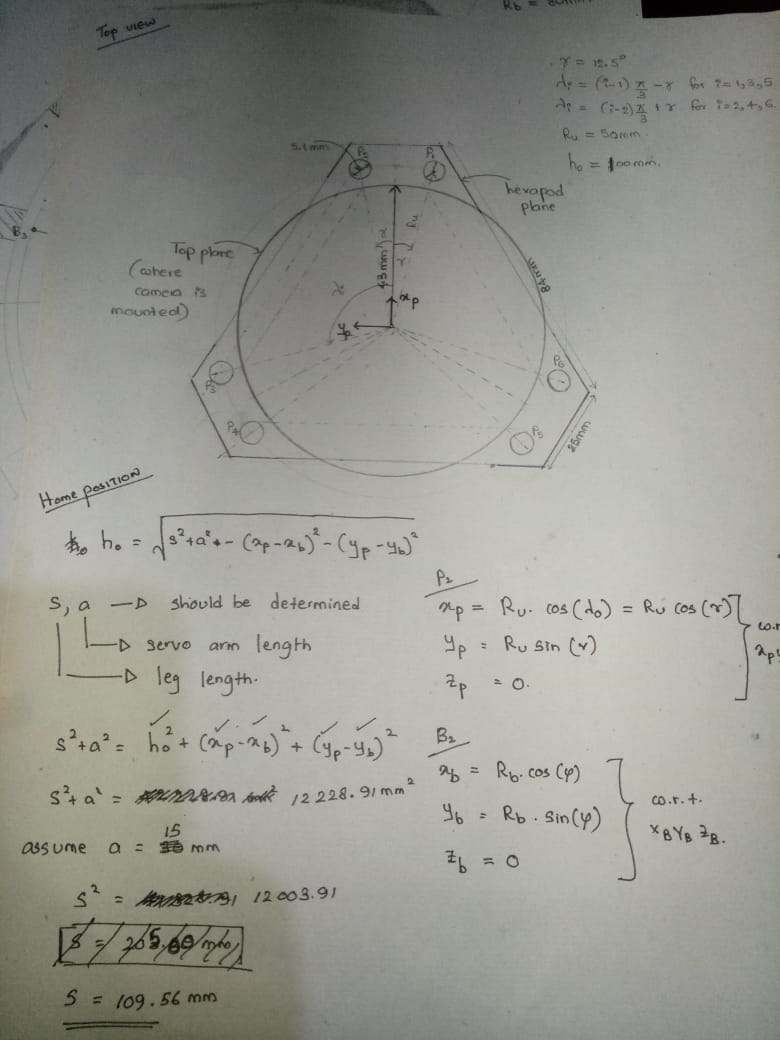 Rb = 80mm
Top view
γ = 12.5°
λi = (i-1) π/3 - γ for i=1,3,5
λi = (i-2) π/3 + γ for i=2,4,6.
Ru = 50mm.
h₀ = 100mm.
5.1mm
P2
P1
hexapod plane
B3
Top plane
(where
camera is
mounted)
43mm
Ru
γ
84mm
λ
xp
yp
P3
P6
P4
P5
25mm
Home POSITION
h₀ = √s²+a² - (xp-xb)² - (yp-yb)²
s, a → should be determined
→ servo arm length
→ leg length.
s²+a² = h₀² + (xp-xb)² + (yp-yb)²
s²+a² = 12228.91 mm²
assume a = 15 mm
s² = 12003.91
s = 109.56 mm
P2
xp = Ru. cos(λ₀) = Ru cos(γ)
yp = Ru sin(γ)
zp = 0.
w.r
xp y
B2
xb = Rb. cos(φ)
yb = Rb. sin(φ)
zb = 0
w.r.t.
XB YB ZB.